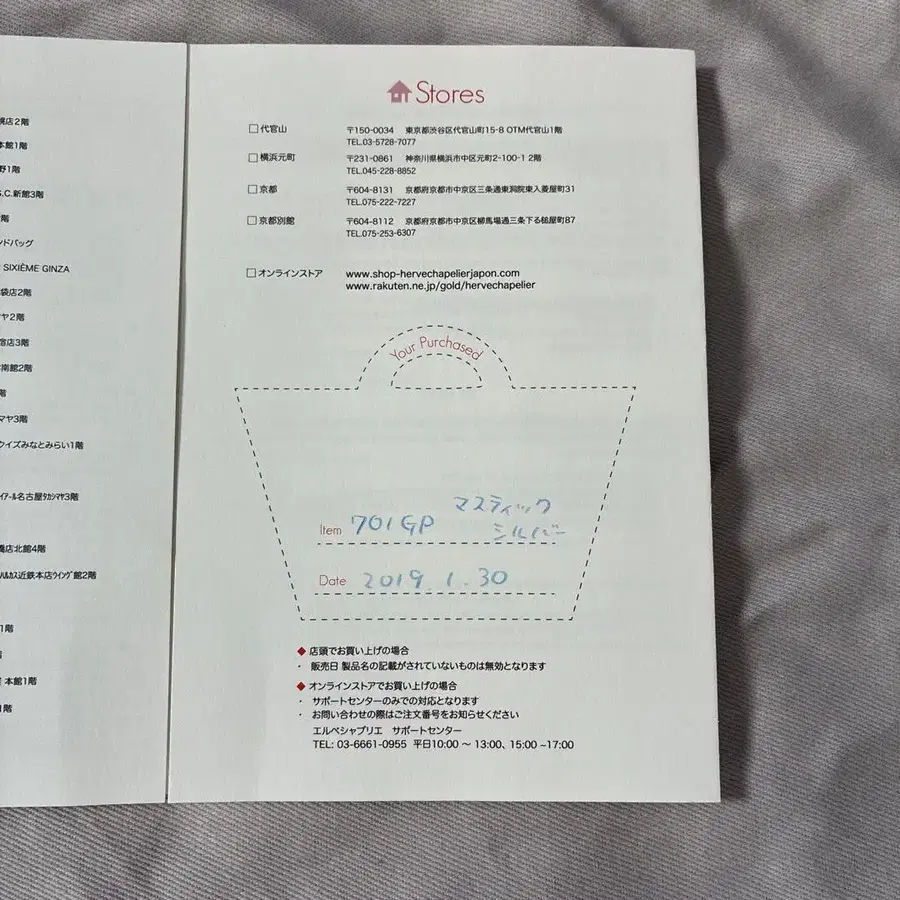 幌店2階
本館1階
野1階
S.C.新館3階
階
ンドバッグ
SIXIÈME GINZA
袋店2階
ヤ2階
宿店3階
南館2階
階
マヤ3階
クイズみなとみらい1階
イアール名古屋タカシマヤ3階
橋店北館4階
ハルカス近鉄本店ウイング館2階
1階
本館1階
1階
Stores
□代官山 〒150-0034 東京都渋谷区代官山町15-8 OTM代官山1階
TEL.03-5728-7077
□横浜元町 〒231-0861 神奈川県横浜市中区元町2-100-1 2階
TEL.045-228-8852
□京都 〒604-8131 京都府京都市中京区三条通東洞院東入菱屋町31
TEL.075-222-7227
□京都別館 〒604-8112 京都府京都市中京区柳馬場通三条下る槌屋町87
TEL.075-253-6307
□オンラインストア www.shop-hervechapelierjapon.com
www.rakuten.ne.jp/gold/hervechapelier
Your Purchased
マスティック
Item 701GP シルバー
Date 2019.1.30
◆店頭でお買い上げの場合
・ 販売日 製品名の記載がされていないものは無効となります
◆オンラインストアでお買い上げの場合
・ サポートセンターのみでの対応となります
・ お問い合わせの際はご注文番号をお知らせください
エルベシャプリエ サポートセンター
TEL: 03-6661-0955 平日10:00 ～ 13:00、15:00 ~17:00